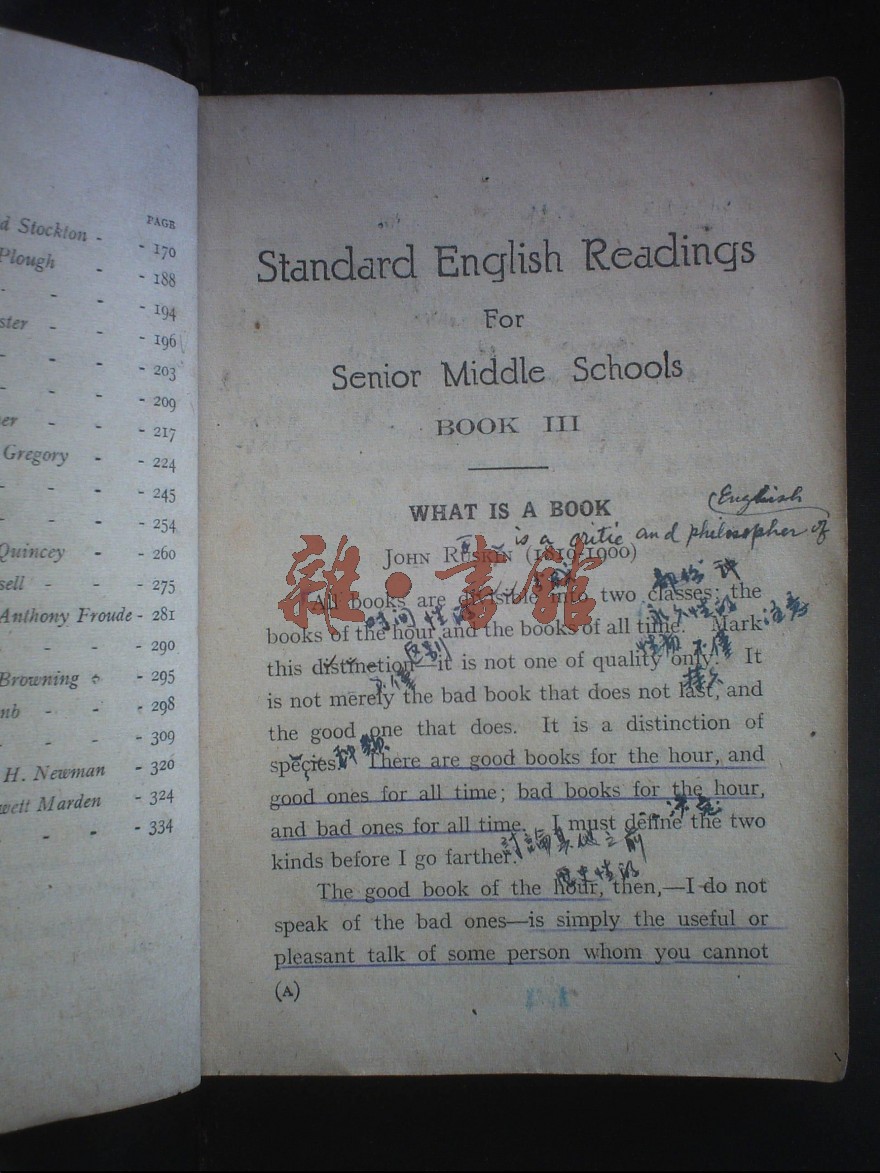 PAGE
d Stockton - - 170
Plough - - 188
- - - 194
ster - - - 196
- - - 203
- - - 209
er - - - 217
Gregory - - 224
- - - 245
- - - 254
Quincey - - 260
sell - - - 275
Anthony Froude - 281
- - - 290
Browning - - 295
mb - - - 298
- - - 309
H. Newman - 320
wett Marden - 324
- - - 334
Standard English Readings
For
Senior Middle Schools
BOOK III
WHAT IS A BOOK
English
is a critic and philosopher of
JOHN RUSKIN (1819-1900)
雜·書館
All books are divisible into two classes: the
时间性
books of the hour and the books of all time. Mark
注意
区别
不僅
this distinction—it is not one of quality only. It
不僅
持久
is not merely the bad book that does not last, and
the good one that does. It is a distinction of
种類
species. There are good books for the hour, and
good ones for all time; bad books for the hour,
and bad ones for all time. I must define the two
討論其他之前
kinds before I go farther.
The good book of the hour, then,—I do not
speak of the bad ones—is simply the useful or
pleasant talk of some person whom you cannot
(A)